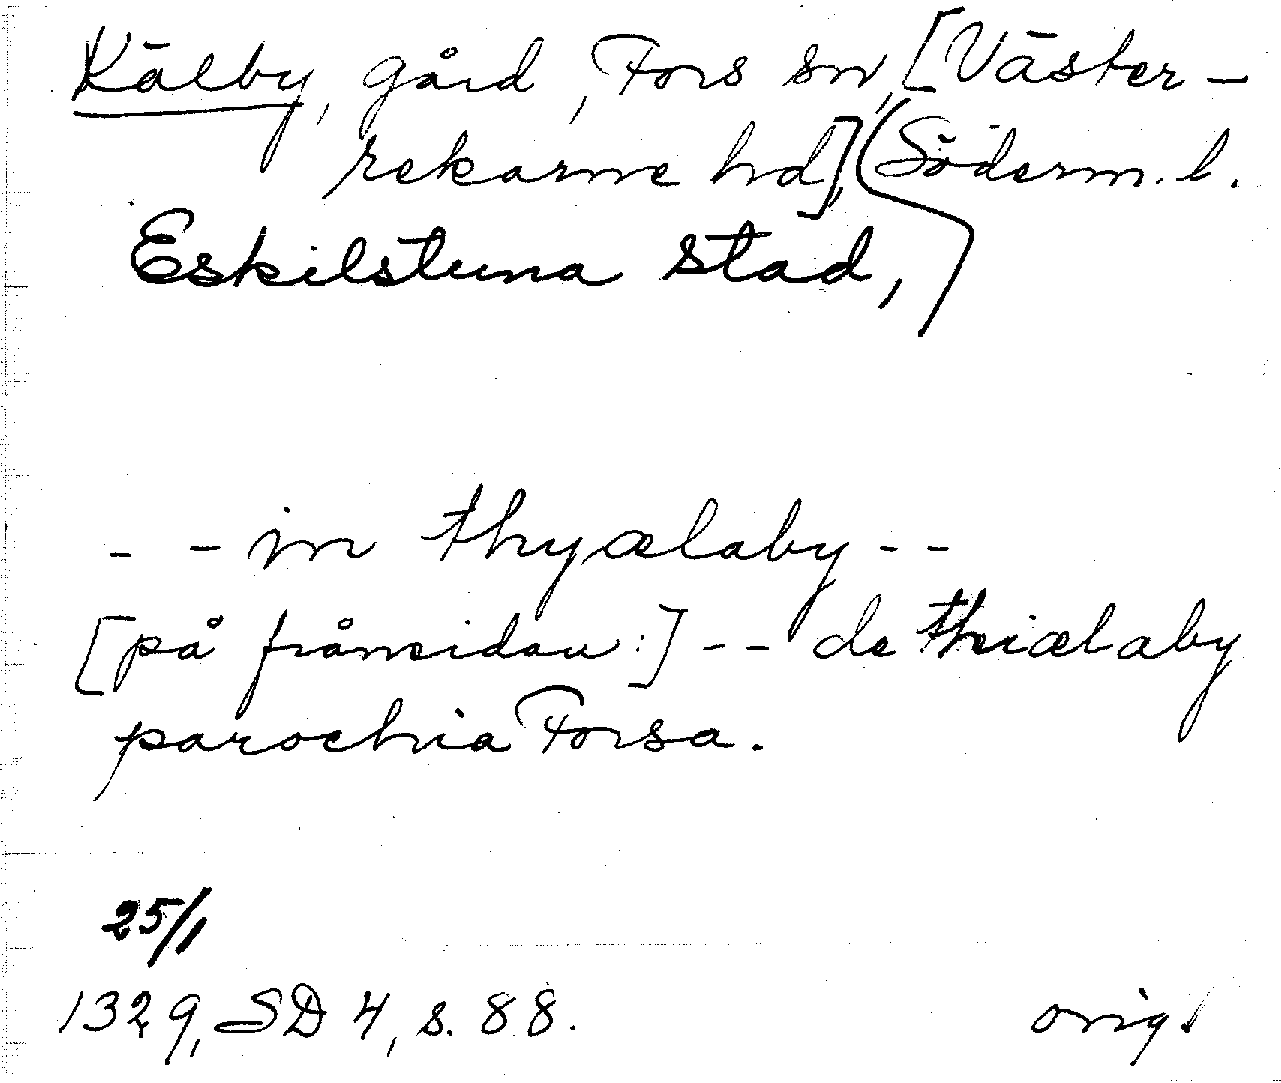 Kälby, gård, Fors sn, [Väster-
rekarne hd], (Söderm. l.
Eskilstuna stad,
- - in thyælaby - -
[på frånsidan:] - - de thiælaby
parochia Forsa.
25/1
1329, SD 4, s. 88. orig.